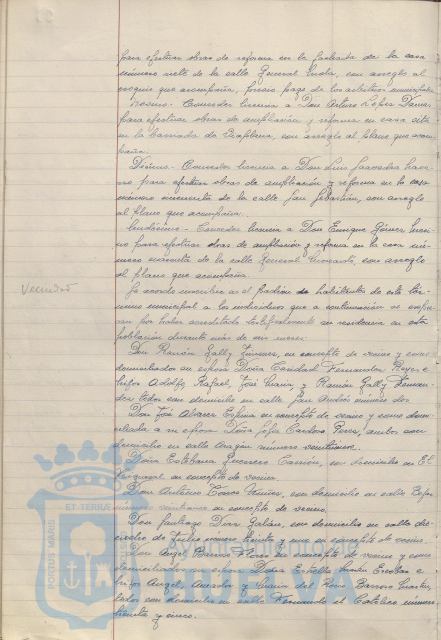 para efectuar obras de reforma en la fachada de la casa
número siete de la calle General Mola, con arreglo al
croquis que acompaña, previo pago de los arbitrios municipales
Noveno.- Conceder licencia a Don Arturo López Damas
para efectuar obras de ampliación y reforma en casa sita
en la barriada de, con arreglo al plano que acom-
paña.
Décimo.- Conceder licencia a Don Luis Saavedra
para efectuar obras de ampliación y reforma en la casa
número cincuenta de la calle San Sebastián, con arreglo
al plano que acompaña.
Undécimo.- Conceder licencia a Don Enrique Gómez
para efectuar obras de ampliación y reforma en la casa nú-
mero cuarenta de la calle General, con arreglo
al plano que acompaña.
Vecindad
Se acordó inscribir en el padrón de habitantes de este tér-
mino municipal a los individuos que a continuación se expre-
san por haber acreditado su residencia en esta
población durante más de seis meses:
Don Ramón Gally Jiménez, en concepto de vecino y como
domiciliados su esposa Doña Caridad Fernández Reyes e
hijos Adolfo, Rafael, José María y Ramón Gally Fernán-
dez todos con domicilio en calle San Andrés número dos
Don José Alvarez Espina en concepto de vecino y como domi-
ciliada a su esposa Doña Josefa Cardoso Pérez, ambos con
domicilio en calle Aragón número veintinueve.
Doña Estebana Guerrero Carrión, con domicilio en El
en concepto de vecino.
Don Antonio Torres, con domicilio en calle
número en concepto de vecino.
Don Santiago Díaz Galán, con domicilio en calle die-
ciocho de Julio número treinta y uno en concepto de vecino.
Don Angel Barroso en concepto de vecino y como
domiciliados su esposa Doña Estrella Martín e
hijos Angel, Amador y María del Rocío Barroso Martín,
todos con domicilio en calle Fernando el Católico número
treinta y cinco.
PORTUS MARIS
ET TERRÆ